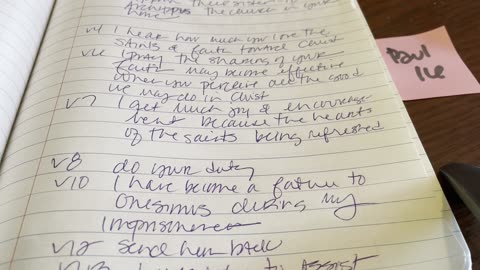 Archippus The church in your
home
v4 I hear how much you love the
saints & faith toward Christ
v6 I pray the sharing of your
faith may become effective
when you perceive all the good
we may do in Christ
v7 I get much joy & encourage-
ment because the hearts
of the saints being refreshed
v8 do your duty
v10 I have become a father to
Onesimus during my
imprisonment
v12 send him back
to assist
Paul